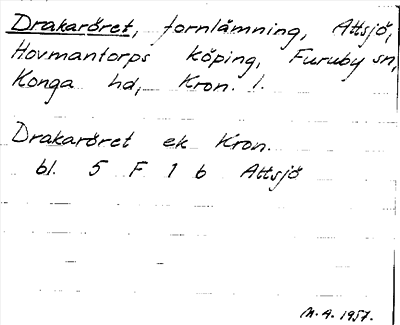 Drakaröret, fornlämning, Attsjö,
Hovmantorps köping, Furuby sn,
Konga hd, Kron. l.
Drakaröret ek Kron.
bl. 5 F 1 b Attsjö
M.A. 1957.